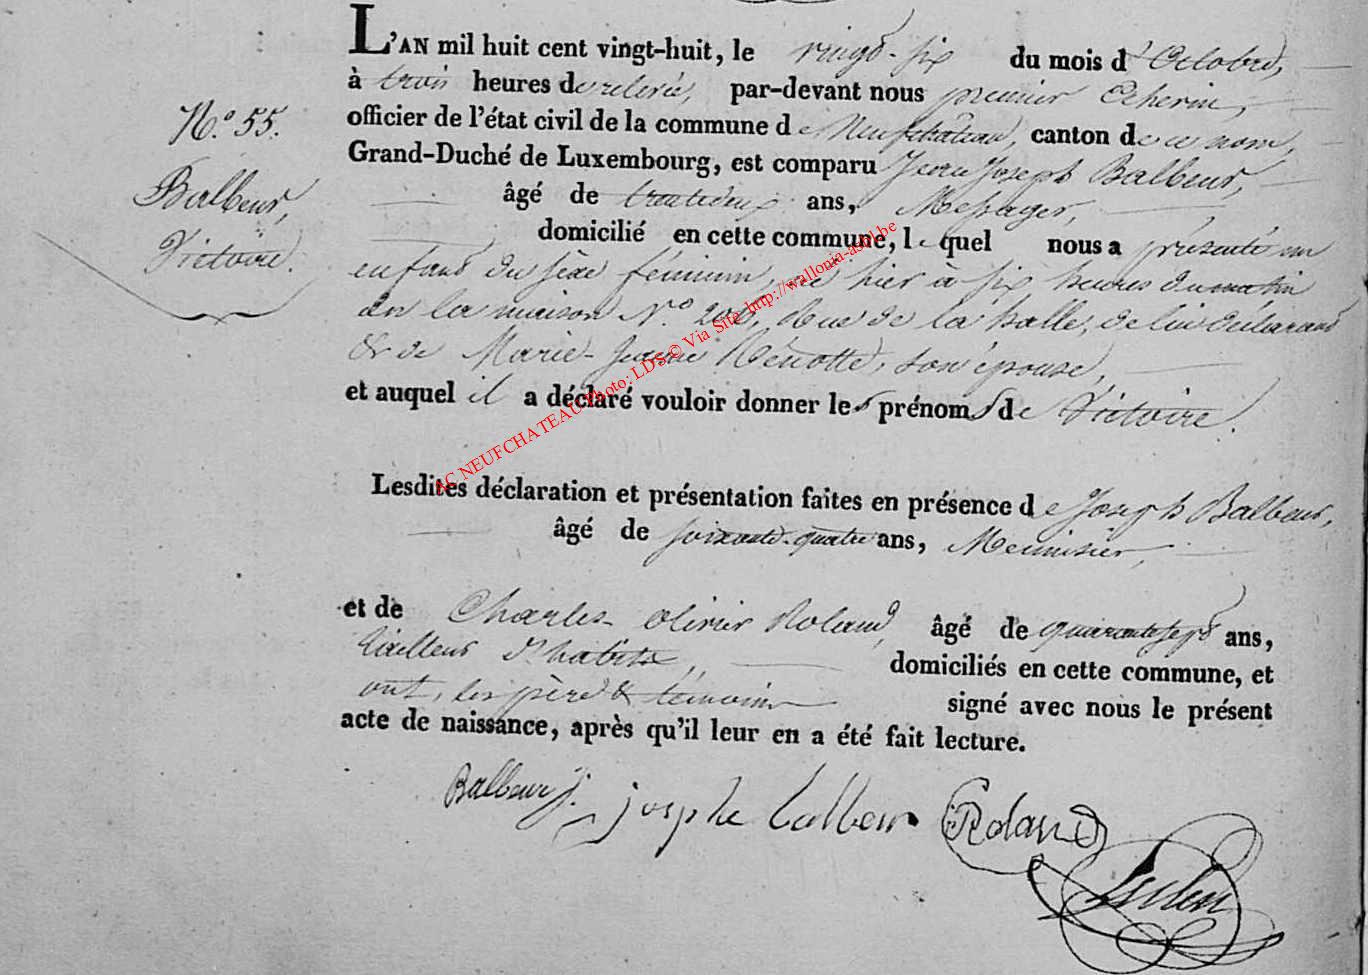 L'AN mil huit cent vingt-huit, le vingt-six du mois d'Octobre,
à trois heures de relevée, par-devant nous premier Echevin,
N.º 55.
officier de l'état civil de la commune de Neufchâteau, canton de ce nom,
Grand-Duché de Luxembourg, est comparu Jean Joseph Balbeur,
Balbeur,
Victoire.
âgé de trentedeux ans, Messager,
domicilié en cette commune, lequel nous a présenté un
enfant du sèxe féminin, né hier à six heures du matin
en la maison N.º 206, Rue de la halle, de lui déclarant
& de Marie-Jeanne son épouse,
et auquel il a déclaré vouloir donner les prénoms de Victoire.
AC NEUFCHATEAU Photo: LDS © Via Site http://wallonia-asbl.be
Lesdites déclaration et présentation faites en présence de Joseph Balbeur,
âgé de soixante-quatre ans, Menuisier,
et de Charles-Olivier Roland, âgé de quarantesept ans,
tailleur d'habits, domiciliés en cette commune, et
ont, les père & témoins signé avec nous le présent
acte de naissance, après qu'il leur en a été fait lecture.
Balbeur j. josephe balbeur Roland